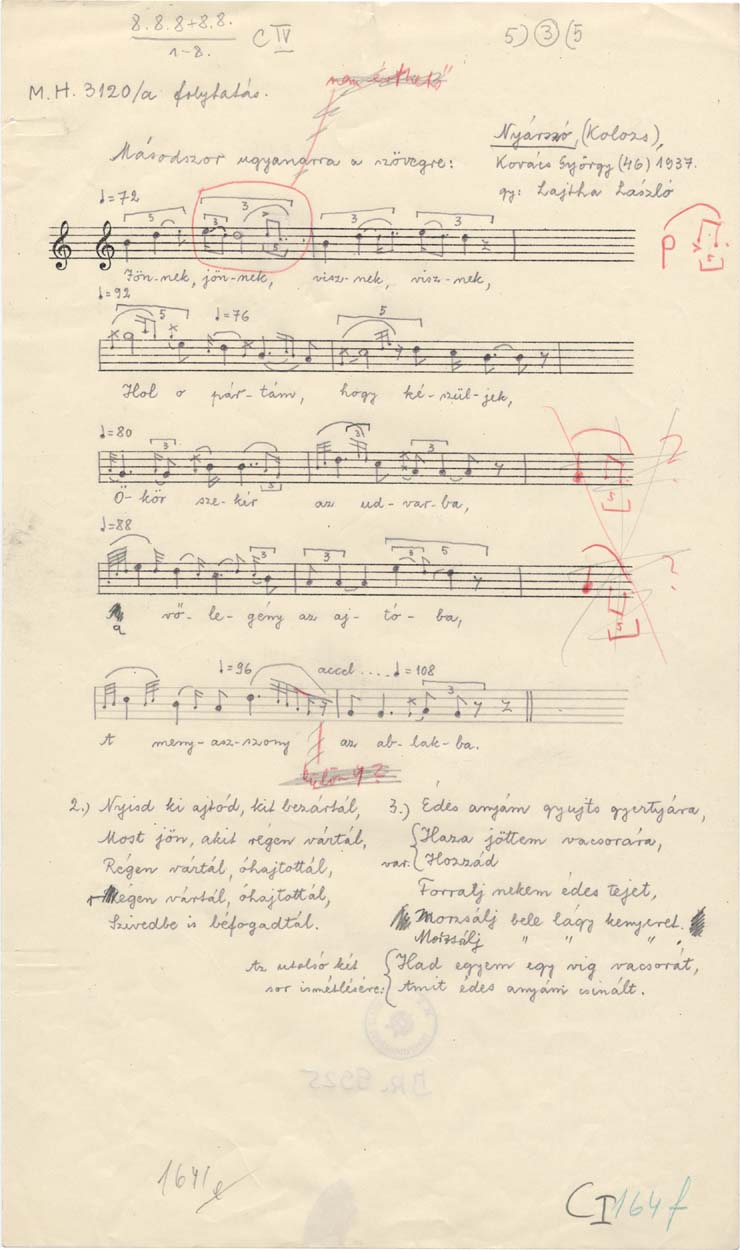 8.8.8+8.8. C IV 5) 3 (5
1-8.
nem érthető"
M.H. 3120/a folytatás.
Nyárszó, (Kolozs),
Másodszor ugyanarra a szövegre: Kovács György (46) 1937.
gy: Lajtha László
♩=72
5 3 3 3 3 3
Jön-nek, jön-nek, visz-nek, visz-nek,
♩=92 ♩=76
5 5
Hol o pár-tám, hogy ké-szül-jek,
♩=80
3 3 3 5 ?
Ö-kör sze-kér az ud-var-ba,
♩=88
3 3 3 5 5 ?
a vő-le-gény az aj-tó-ba,
♩=96 accel.... ♩=108
3
A meny-asz-szony az ab-lak-ba.
2.) Nyisd ki ajtód, kit bezártál,
Most jön, akit régen vártál,
Régen vártál, óhajtottál,
Régen vártál, óhajtottál,
Szivedbe is béfogadtál.
3.) Édes anyám gyujts gyertyára,
Haza jöttem vacsorára,
var. Hozzád
Forralj nekem édes tejet,
Morzsálj bele lágy kenyeret.
Morzsálj " " " .
Az utolsó két sor ismétlésére:
Had egyem egy vig vacsorát,
Amit édes anyám csinált.
DR. 8925
164/e
CI 164f